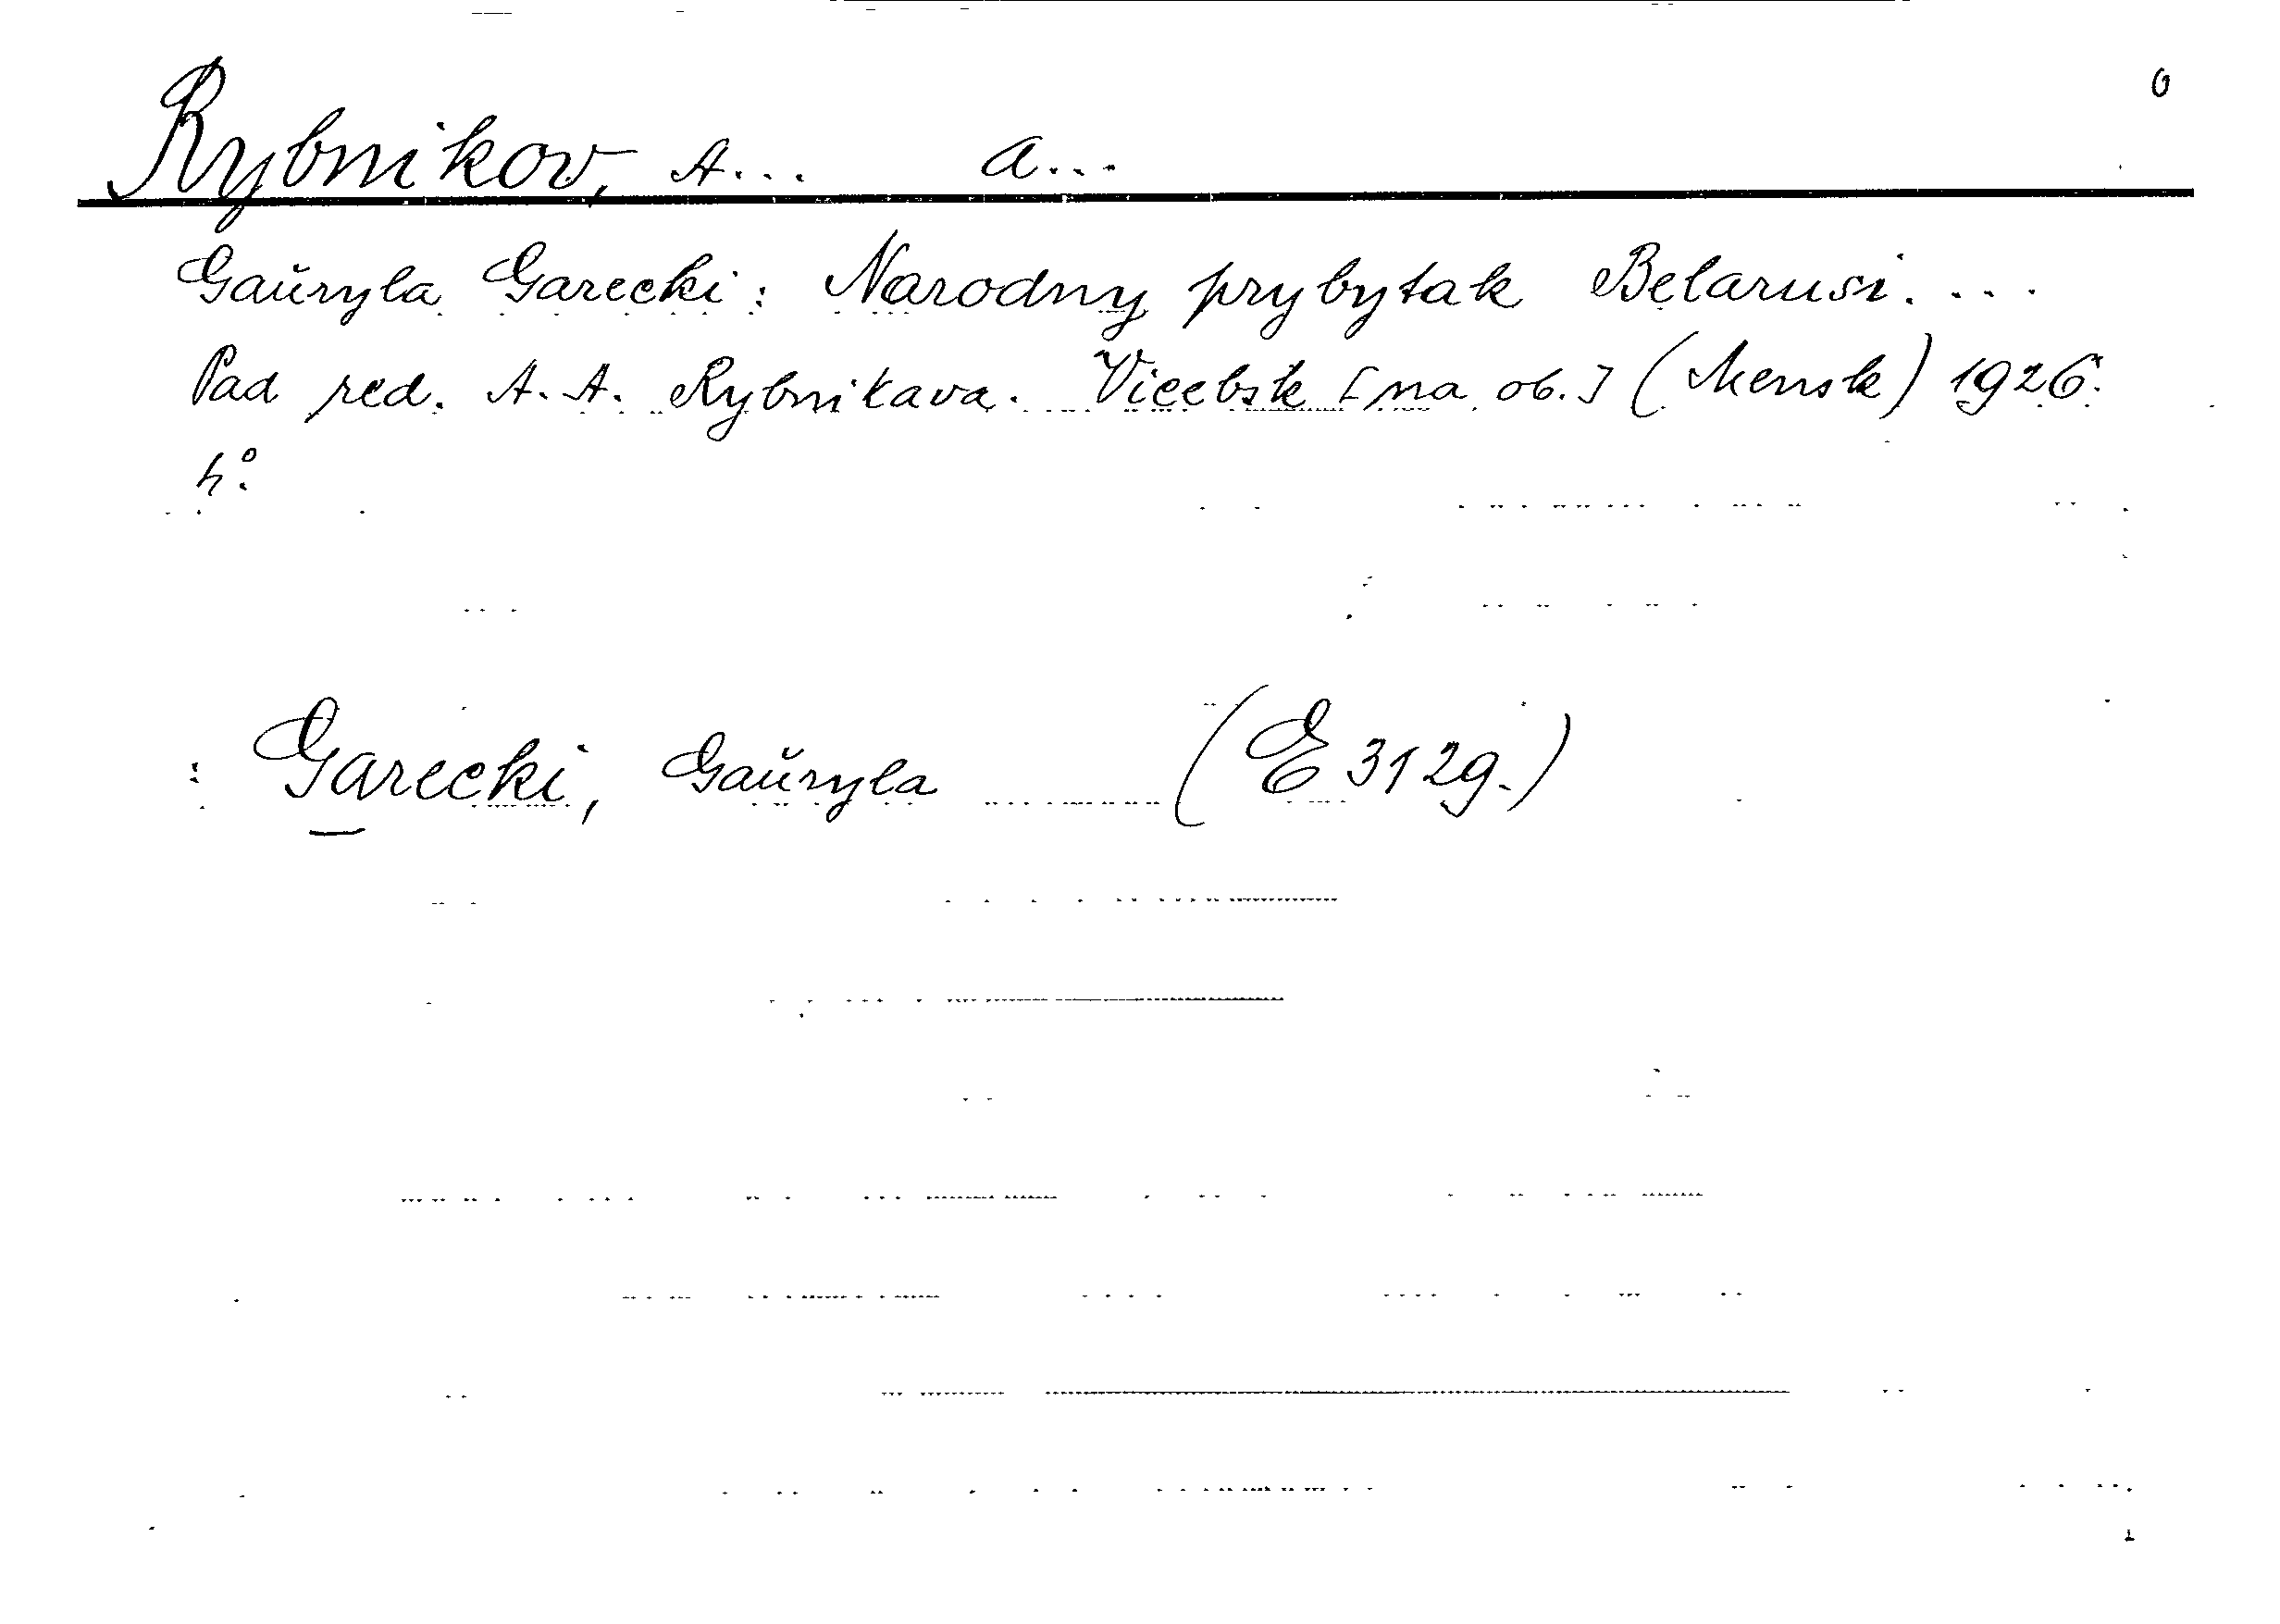 0
Rybnikov, A... A...
Gaŭryla Garecki: Narodny prybytak Belarusi. ...
Pad red. A. A. Rybnikava. Vicebsk [na ob.] (Mensk) 1926.
4°.
: Garecki, Gaŭryla (E 312g.)